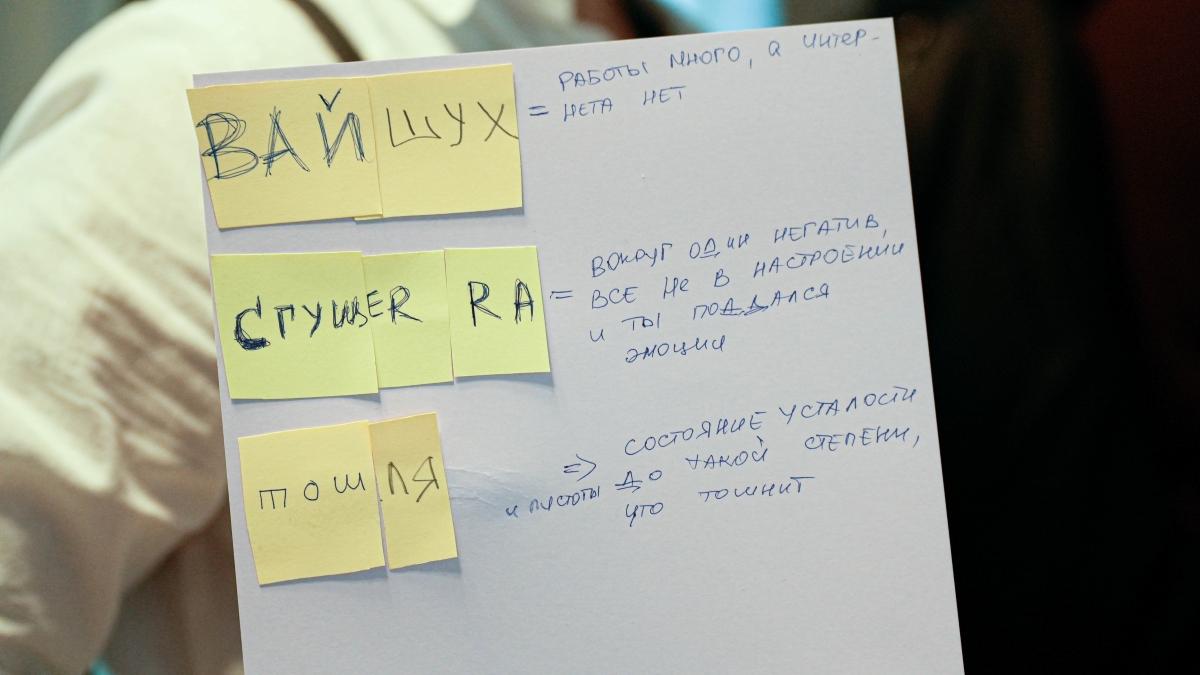 ВАЙ ШУХ = РАБОТЫ МНОГО, а ИНТЕР-
НЕТА НЕТ
СГУЩЕR RA = ВОКРУГ ОДИН НЕГАТИВ,
ВСЕ НЕ В НАСТРОЕНИИ
И ТЫ ПОДДАЛСЯ
ЭМОЦИИ
ТОШ ЛЯ => СОСТОЯНИЕ УСТАЛОСТИ
и пустоты ДО ТАКОЙ СТЕПЕНИ,
ЧТО ТОШНИТ